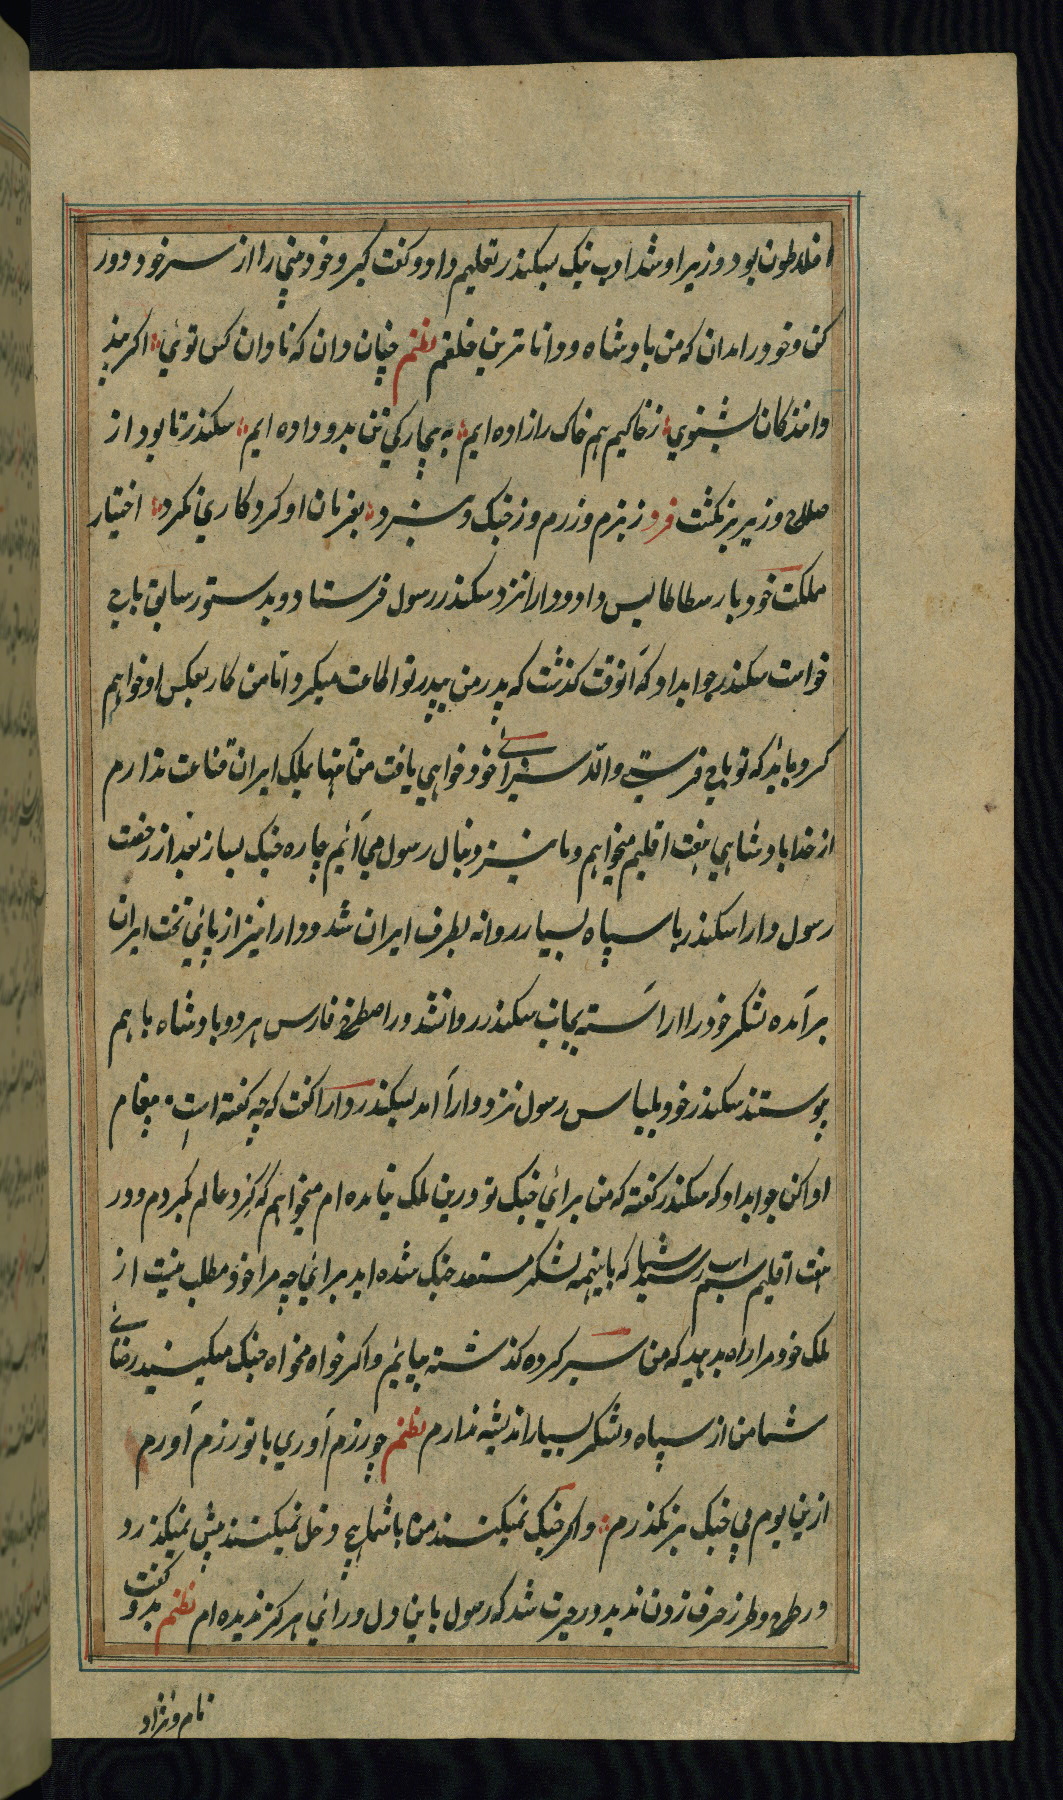 افلاطون بود وزیر او شد ادب نیک بسکندر تعلیم داد و گفت کبر و خود منی را از سر خود دور
کن و خود را مدان که من پادشاه و داناترین خلقم نظم چنان دان که نادان کس توئی اگر پند
دانندگان بشنوی ز خاکیم هم خاک را زاده ایم به بیچارگی تن بدو داده ایم سکندر تا بود از
صلاح وزیر بر نگشت فرد ز بزم و ز رزم و ز جنگ و نبرد بفرمان او کرد کاری نکرد اختیار
مملکت خود بارسطاطالیس داد و دارا نزد سکندر رسول فرستاد و بدستور سابق باج
خواست سکندر جوابداد که آنوقت گذشت که پدر من بپدر تو اطاعت میکرد اما من کار بعکس او خواهم
کرد باید که تو باج فرستی والّا سزای خود خواهی یافت من تنها بملک ایران قناعت ندارم
از خدا پادشاهی هفت اقلیم میخواهم و ما نیز دنبال رسول می آئیم چاره جنگ بساز بعد از رخصت
رسول دارا سکندر با سپاه بسیار روانه بطرف ایران شد و دارا نیز از پائی تخت ایران
برآمده لشکر خود را اراسته بجانب سکندر روانشد در اصطخر فارس هر دو پادشاه با هم
پیوستند سکندر خود بلباس رسول نزد دارا آمد بسکندر دارا گفت که چه گفته است پیغام
ادا کن جوابداد که سکندر گفته که من برائی جنگ تو درین ملک نیامده ام میخواهم که گرد عالم بگردم و در
هفت اقلیم اسپ رسم شما که باینهمه لشکر مستعد جنگ شده اید برائی چه مرا خود مطلب نیست از
ملک خود مرا راه بدهید که من سیر کرده گذشته بیایم و اگر خواه مخواه جنگ میکنید رضائی
شما من از سپاه و لشکر بسیار اندیشه ندارم نظم چو رزم آوری با تو رزم آورم
ازین بوم بی جنگ بر نگذرم و اگر جنگ نمیکنند من با شما هیچ دخل نمیکنند پیش نمیگذرد
در طرح و طرز حرف زدن ندید در حیرت شد که رسول باین دل و رائی هرگز ندیده ام نظم بدو گفت
نام و نژاد